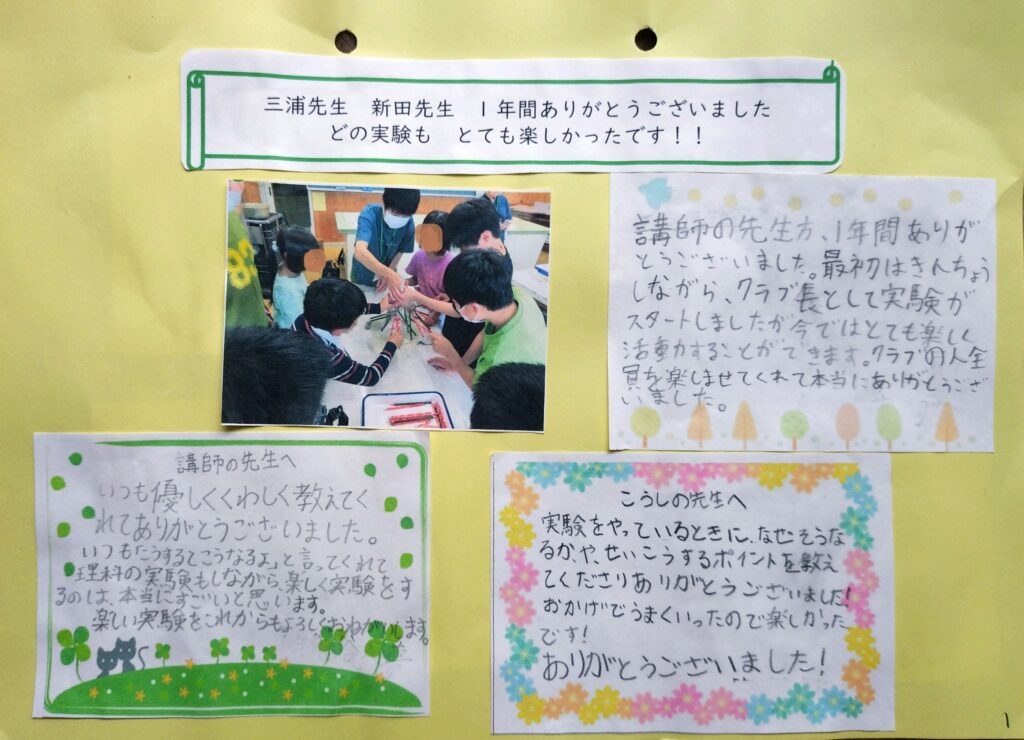 三浦先生　新田先生　１年間ありがとうございました
どの実験も　とても楽しかったです！！
83
講師の先生方、1年間ありが
とうございました。最初はきんちょう
しながら、クラブ長として実験が
スタートしましたが今ではとても楽しく
活動することができます。クラブの人全
員を楽しませてくれて本当にありがとうござ
いました。
講師の先生へ
いつも優しくくわしく教えてく
れてありがとうございました。
いつも「こうするとこうなるよ」と言ってくれて
理科の実験もしながら、楽しく実験をす
るのは、本当にすごいと思います。
楽しい実験をこれからもよろしくおねがいします。
こうしの先生へ
実験をやっているときに、なぜそうな
るか、や、せいこうするポイントを教え
てくださりありがとうございました!
おかげでうまくいったので楽しかった
です!
ありがとうございました!
1